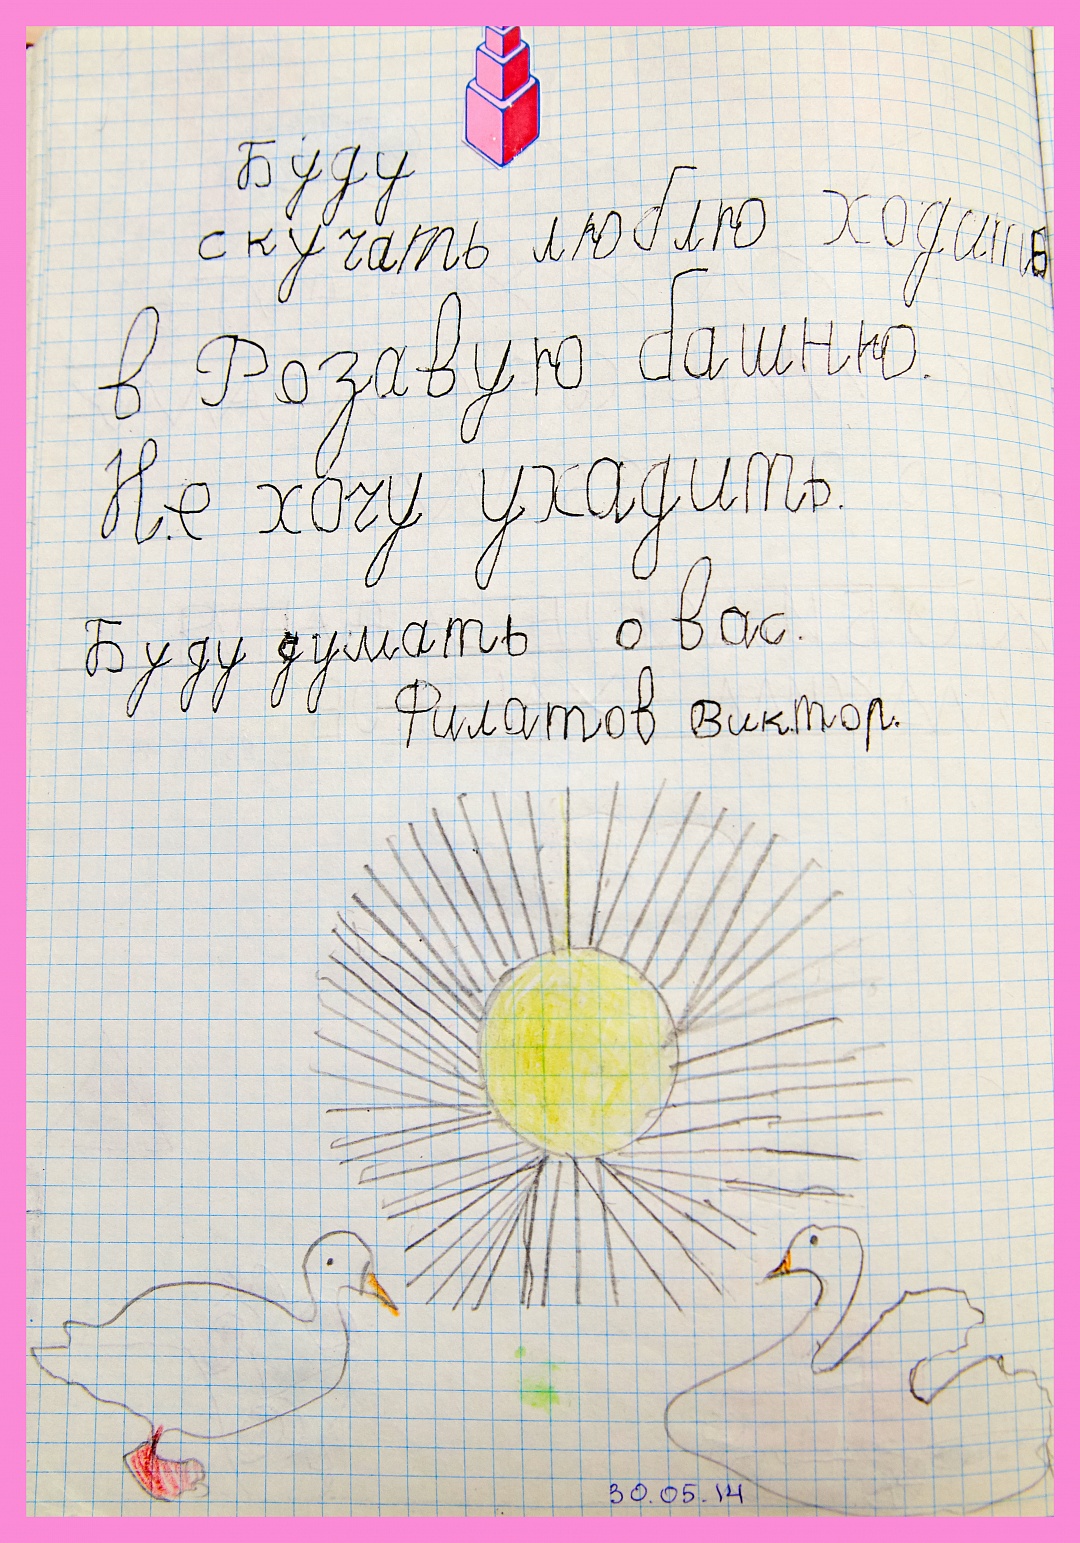 Буду
скучать люблю ходить
в Розавую башню.
Не хочу ухадить.
Буду думать о вас.
Филатов Виктор.
30.05.14